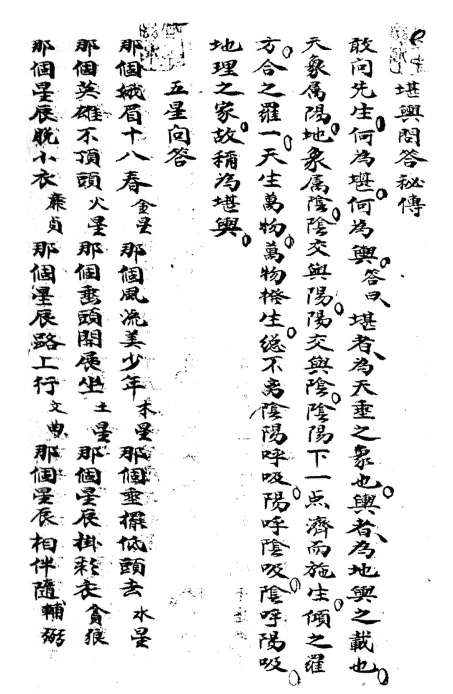 堪輿問答秘傳
敢问先生何為堪何為輿答曰堪者為天垂之象也輿者為地輿之載也
天象属陽地象属陰陰交與陽陽交與陰陰陽下一点濟而施生傾之羅
方合之羅一天生萬物萬物捲生總不离陰陽呼吸陽呼陰吸陰呼陽吸
地理之家故稱為堪輿
五星问答
那個娥眉十八春 金星 那個風流美少年 木星 那個垂擺低頭去 水星
那個英雄不頂頭 火星 那個垂頭開展坐 土星 那個星辰掛彩衣 貪狼
那個星辰脫小衣 廉貞 那個星辰路上行 文曲 那個星辰相伴隨 輔弼